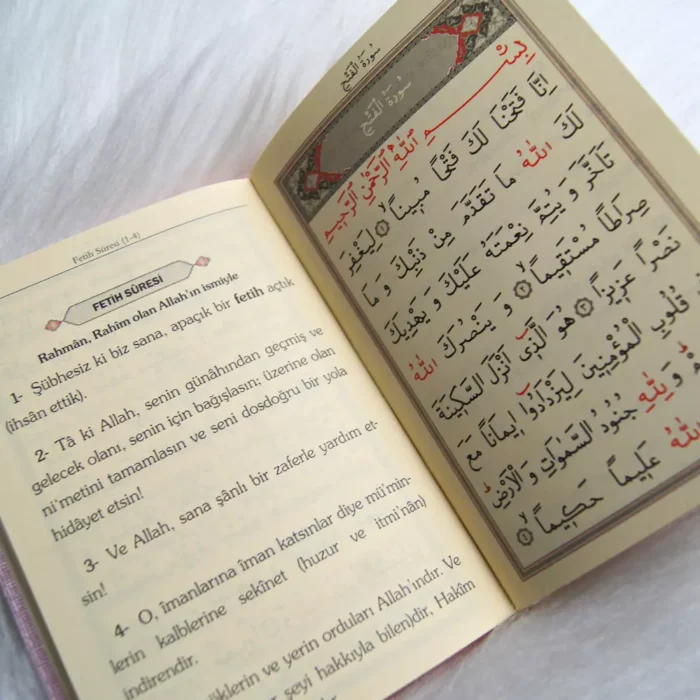 Fetih Sûresi (1-4)
FETİH SÛRESİ
Rahmân, Rahîm olan Allah'ın ismiyle
1- Şübhesiz ki biz sana, apaçık bir fetih açtık
(ihsân ettik).
2- Tâ ki Allah, senin günâhından geçmiş ve
gelecek olanı, senin için bağışlasın; üzerine olan
ni'metini tamamlasın ve seni dosdoğru bir yola
hidâyet etsin!
3- Ve Allah, sana şânlı bir zaferle yardım et-
sin!
4- O, îmanlarına îman katsınlar diye mü'min-
lerin kalblerine sekînet (huzur ve itmi'nân)
indirendir.
öklerin ve yerin orduları Allah'ındır. Ve
şeyi hakkıyla bilen)dir, Hakîm
سُورَةُ الْفَتْحِ
سُورَةُ الْفَتْحِ
بِسْمِ اللّٰهِ الرَّحْمٰنِ الرَّحِيمِ
اِنَّا فَتَحْنَا لَكَ فَتْحًا مُبِينًا ﴿١﴾ لِيَغْفِرَ
لَكَ اللّٰهُ مَا تَقَدَّمَ مِنْ ذَنْبِكَ وَ مَا
تَاَخَّرَ وَ يُتِمَّ نِعْمَتَهُ عَلَيْكَ وَ يَهْدِيَكَ
صِرَاطًا مُسْتَقِيمًا ﴿٢﴾ وَ يَنْصُرَكَ اللّٰهُ
نَصْرًا عَزِيزًا ﴿٣﴾ هُوَ الَّذِى اَنْزَلَ السَّكِينَةَ
قُلُوبِ الْمُؤْمِنِينَ لِيَزْدَادُوا اِيمَانًا مَعَ
وَ لِلّٰهِ جُنُودُ السَّمٰوَاتِ وَ الْاَرْضِ
اللّٰهُ عَلِيمًا حَكِيمًا ﴿٤﴾